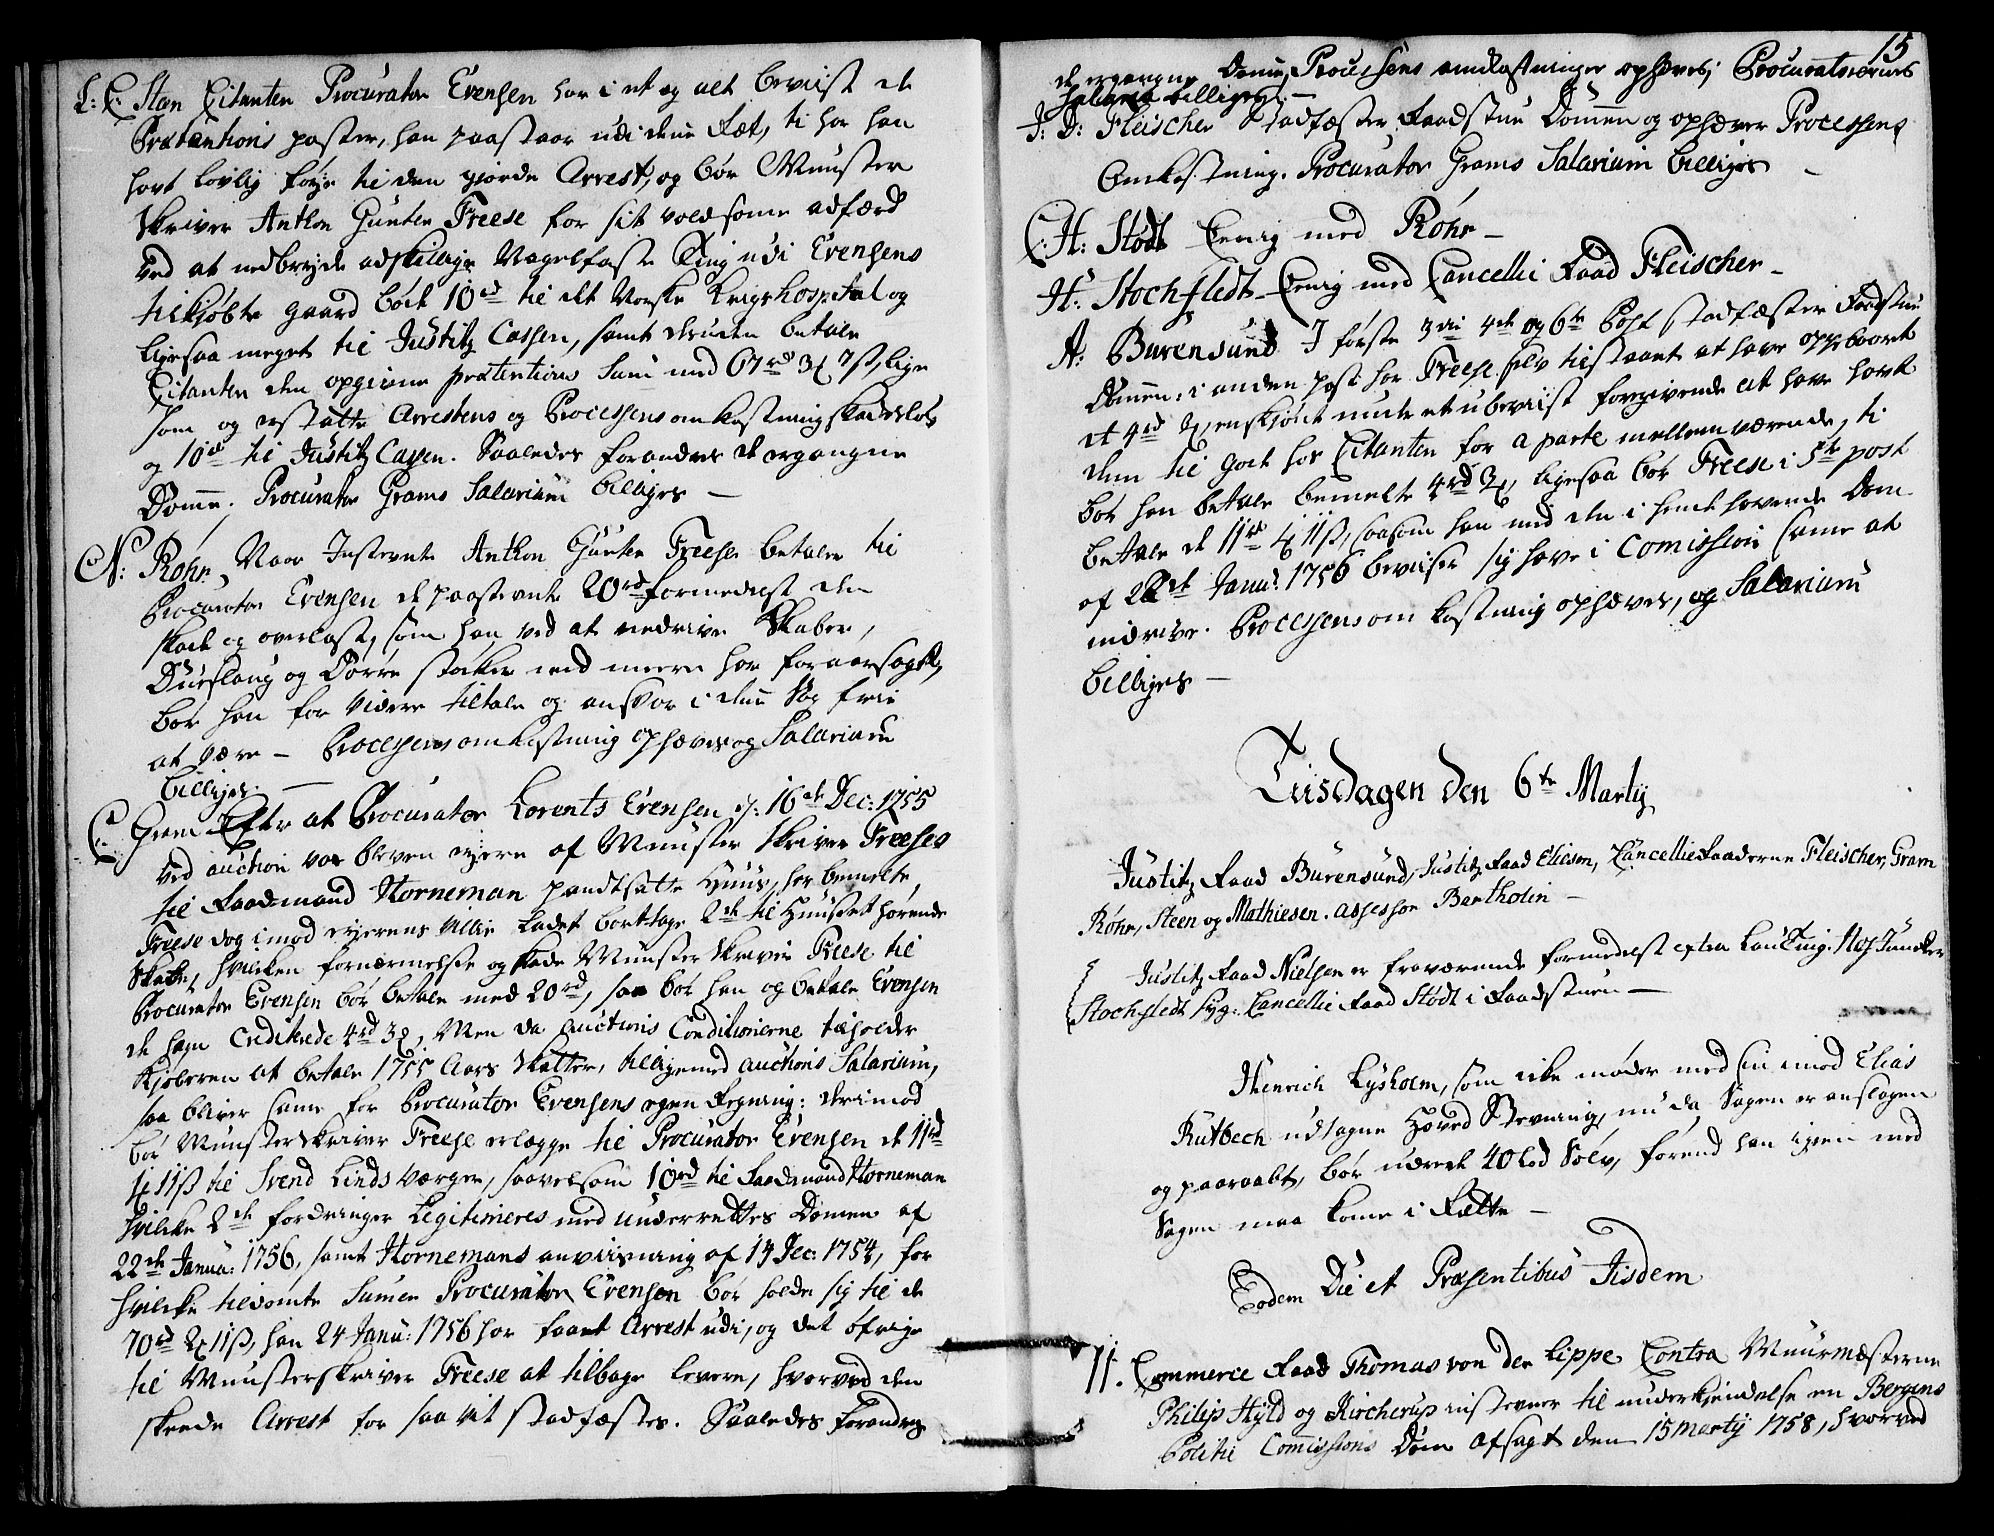 L: C: Stan Citanten Procurator Evensen har i et og alt beviist de
Prætentions poster, han paastaar udi denne Ræt, ti har han
havt lovlig føye til den giorde Arrest, og bør Munster
skriver Anthon Gunter Freese for sit voldsomme adfærd
ved at nedbryde adskillige Nagelfaste Ting udi Evensens
tilkjøbte gaard bøde 10rd til det Norske Krigshospital og
ligesaa meget til Justitz Cassen, samt desuden betale
Citanten den opgivne prætentions Sum med 67rd 3 7ß, lige
som og erstatte Arrestens og Processens omkostning skadesløs
og 10rd til Justitz Cassen. Saaledes forandres de ergangne
Domme. Procurator Grams Salarium billiges —
N: Röhr, Naar Instevnte Anthon Gunter Freese betaler til
Procurator Evensen de paastevnte 20rd formedelst den
skade og overlast, som han ved at nedrive Skabe,
Dueslaug og Dørre stokke med meere har foraarsaget,
bør han for videre tiltale og ansvar i denne Sag frie
at være — Processens omkostning ophæves og Salarium
billiges. —
C: Gram Efter at Procurator Lorents Evensen d: 16de Dec: 1755
ved auction var bleven ejere af Munster skriver Freeses
til Raadmand Horneman pandtsatte Huus, har bemelte
Freese dog imod ejerens Villie ladet borttage 2de til Huuset hørende
Skabe, hvilken fornærmelse og skade Munster skriver Freese til
Procurator Evensen bør betale med 20rd, saa bør han og betale Evensen
de ham Crediterede 4rd 3, Men da auctions Conditionerne tilholder
Kjøberen at betale 1755 Aars Skatter, tilligemed auctions Salarium,
saa bliver samme for Procurator Evensens egen Regning: derimod
bør Munsterskriver Freese erlægge til Procurator Evensen de 11rd
4 11ß til Svend Linds Værger, saavelsom 10rd til Raadmand Horneman
hvilke 2de fordringer Legitimeres med underrettes Dommen af
22de Janua: 1756, samt Hornemans anviisning af 14 Dec: 1754, for
hvilke tildømte Summer Procurator Evensen bør holde sig til de
70rd 2 11ß, han 24 Janu: 1756 har faaet Arrest udi, og det øfrige
til Munsterskriver Freese at tilbage levere, hvorved den
skeede Arrest for saa vit stadfæstes. Saaledes forandres
15
de ergangne Domme, Processens omkostninger ophæves, Procuratorernes
Salaria billiges. —
J: D: Fleischer Stadfæster Raadstue Dommen og ophæver Processens
Omkostning. Procurator Grams Salarium billiges —
C: H: Stödt Eenig med Röhr —
H: Stochfledt Eenig med Cancellie Raad Fleischer —
A: Burensund I første 3die 4de og 6te Post stadfæster Raadstue
Dommen, i anden post har Freese selv tilstaaet at have oppebaaret
de 4rd 3, enskjønt med et ubeviist foregivende at have havt
dem til gode hos Citanten for a parte mellemværende, ti
bør han betale bemelte 4rd 3, ligesaa bør Freese i 5te post
betale de 11rd 4 11ß, saasom han med den i hende havende Dom
af 22de Janu: 1756 beviiser sig have i Comission samme at
inddrive. Processens omkostning ophæves, og Salarium
billiges —
Tiisdagen den 6te Martij
Justitz Raad Burensund, Justitz Raad Eliesen, Cancellie Raaderne Fleischer, Gram
Röhr, Steen og Mathiesen. Assessor Bartholin —
Justitz Raad Nielsen er fraværende formedelst extra Lauting. Hof Juncker
Stochfledt syg. Cancellie Raad Stödt i Raadstuen —
Henrich Lysholm, som icke møder med sin imod Elias
Rutbech udtagne Hoved Stevning, nu da Sagen er anslagen
og paaraabt, bør udrede 40 Lod Sölv, forend han igien med
Sagen maa komme i Rætte —
Eodem Die et Præsentibus Iisdem
11. Commerce Raad Thomas von der Lippe Contra Muurmæsterne
Philip Hyld og Kircherup instevner til underkjendelse en Bergens
Politie Commissions Dom afsagt den 15 Martij 1758, hvorved